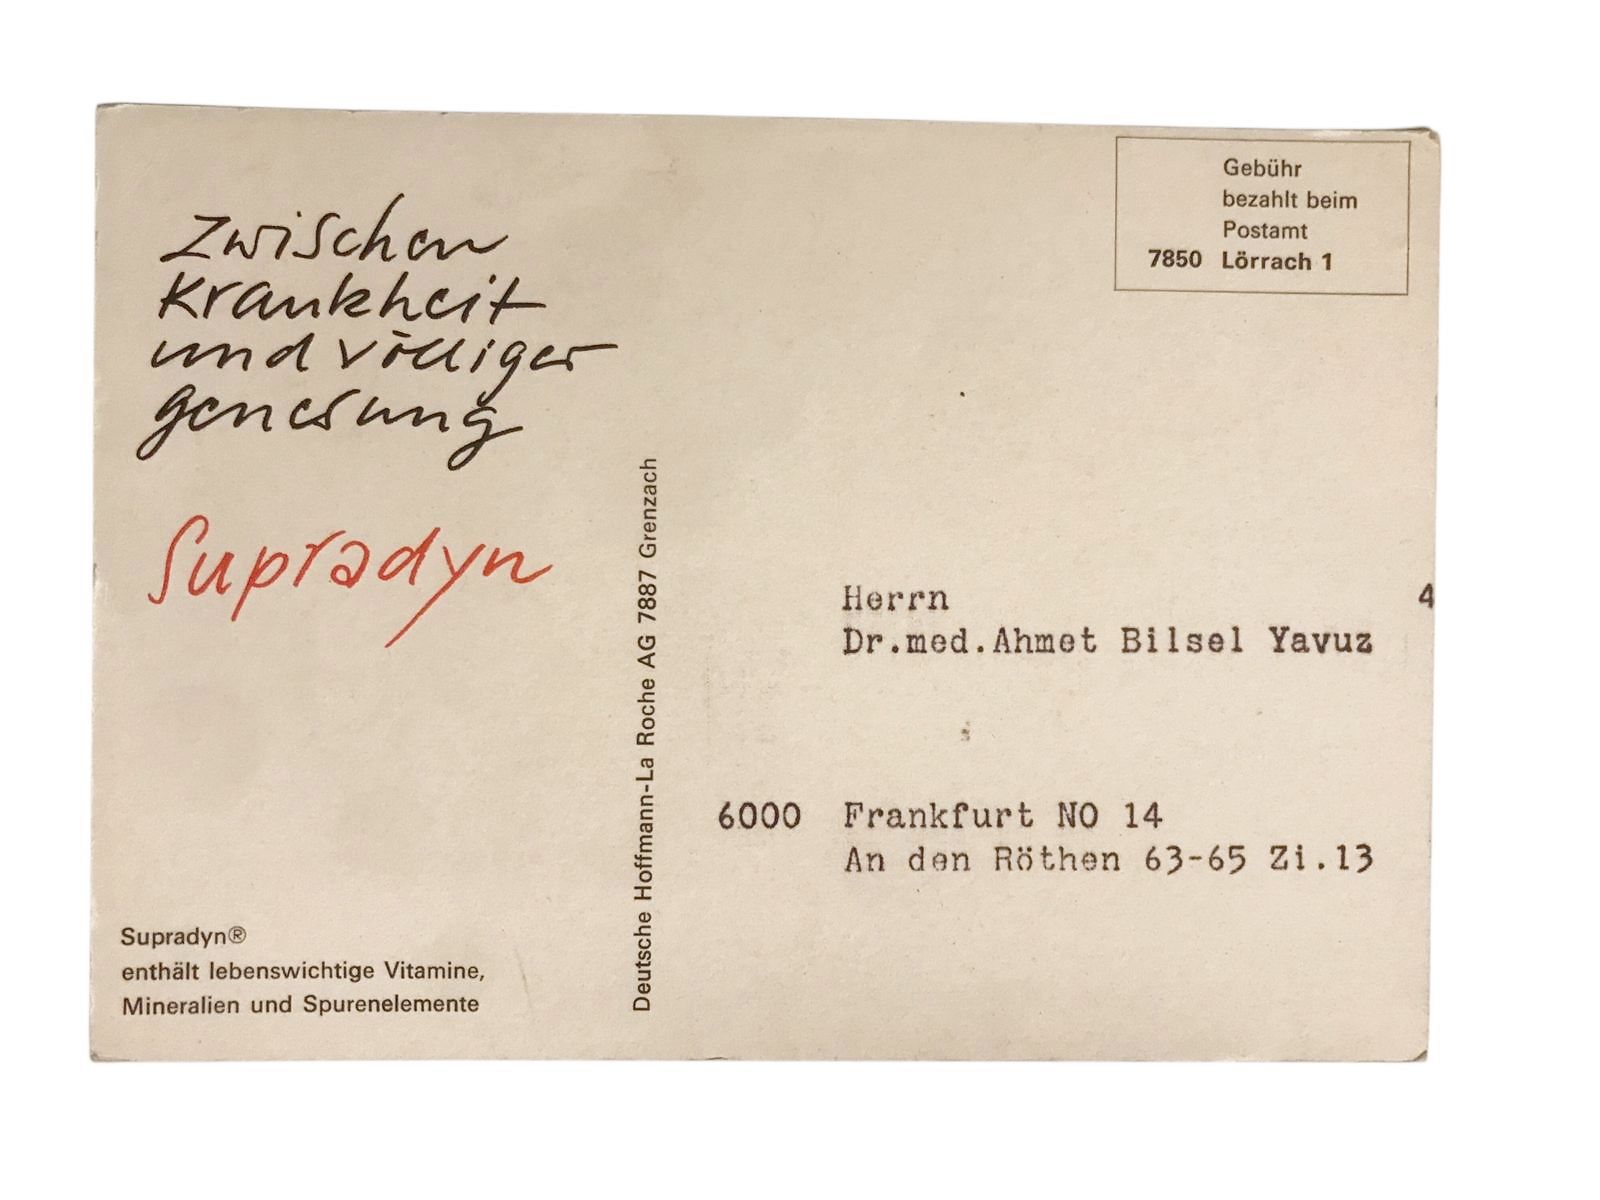 Zwischen
Krankheit
und völliger
genesung
Supradyn
Supradyn®
enthält lebenswichtige Vitamine,
Mineralien und Spurenelemente
Deutsche Hoffmann-La Roche AG 7887 Grenzach
Gebühr
bezahlt beim
Postamt
7850 Lörrach 1
Herrn 4
Dr.med.Ahmet Bilsel Yavuz
6000 Frankfurt NO 14
An den Röthen 63-65 Zi.13